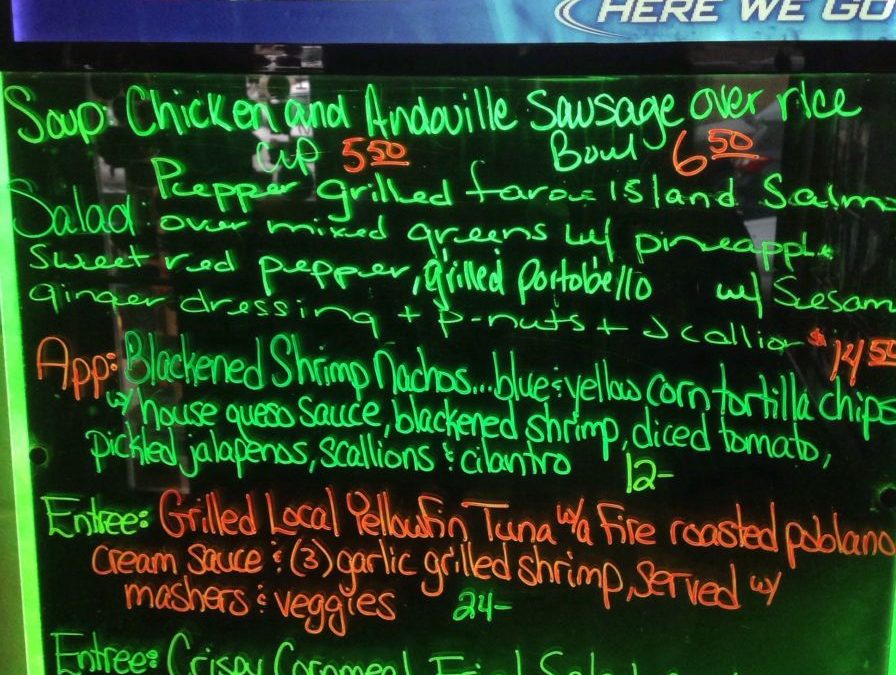 HERE WE GO
Soup: Chicken and Andouille Sausage over rice
cup 5.50 Bowl 6.50
Pepper grilled faroe Island Salmo
Salad: over mixed greens w/ pineapple
sweet red pepper, grilled portobello w/ Suesam
ginger dressing + p-nuts + scallion $14.50
App: Blackened Shrimp Nachos...blue & yellow corn tortilla chips
w/ house queso sauce, blackened shrimp, diced tomato,
pickled jalapenos, scallions & cilantro 12-
Entree: Grilled Local Yellowfin Tuna w/a fire roasted poblano
cream sauce & (3) garlic grilled shrimp, served w/
mashers & veggies 24-
Entree: Crispy Cornmeal Fried